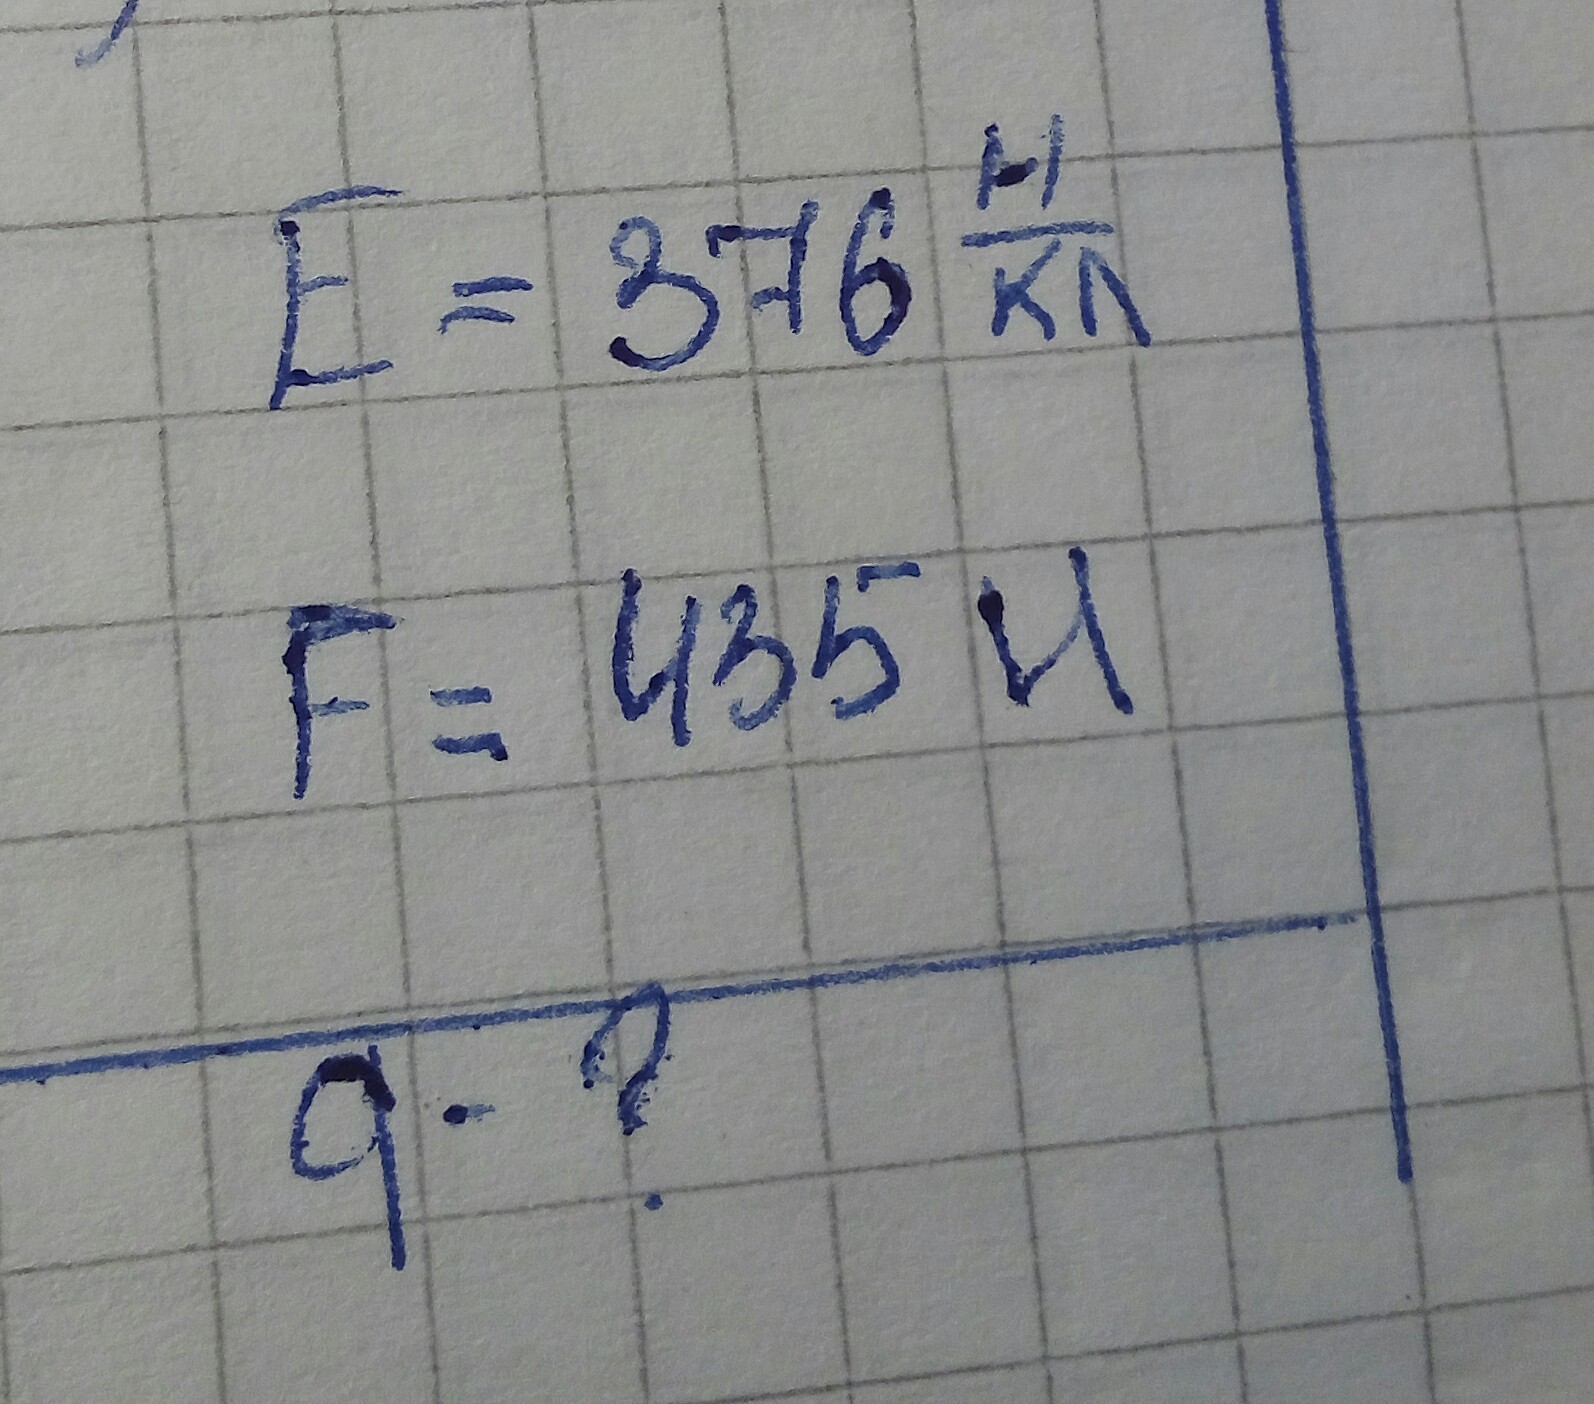 E = 376 Н/Кл
F = 435 Н
q - ?